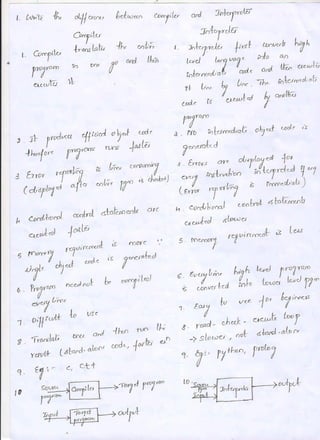 1. Write the difference between Compiler and Interpreter
Compiler
1. Compiler translates the entire
program in one go and then
executes it
2. It produces efficient object code
therefore programs runs faster
3 Error reporting is time consuming
(displayed after entire pgm is checked)
4. Conditional control statements are
executed faster
5 Memory requirement is more ∵
single object code is generated
6. Program need not be compiled
every time
7. Difficult to use
8. Translate once and then run the
result (stand-alone code, faster
9. Eg:- C, C++
10 Source program → Compiler → Target program
Input → Target program → output
Interpreter
1. Interpreter first converts high
level language into an
intermediate code and then executes
it line by line. The intermediate
code is executed by another
program
2. No intermediate object code is
generated
3. Errors are displayed for
every instruction interpreted if any
(Error reporting is immediate)
4. Conditional control statements
executed slower
5. Memory requirement is less
6. Everytime high level program
is converted into lower level pgm
7. Easy to use for beginners
8. read - check - execute loop
→ slower, not stand-alone
9. Eg:- python, prolog
10. Source Input → Interpreter → output